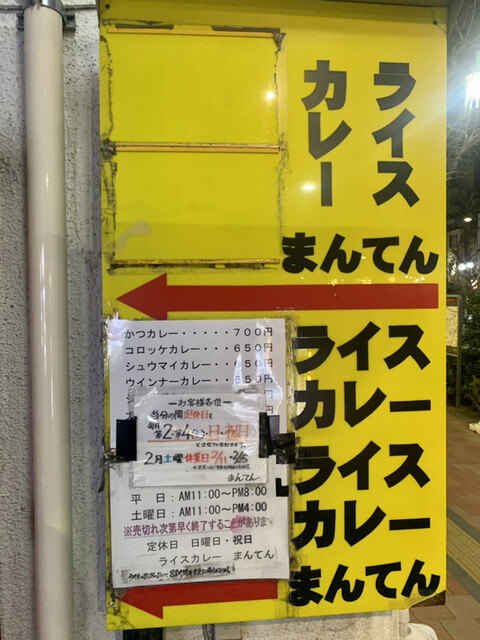 ライス
カレー
まんてん
ライス
カレー
ライス
カレー
まんてん
かつカレー・・・・・７００円
コロッケカレー・・・・６５０円
シュウマイカレー・・・６５０円
ウインナーカレー・・・６５０円
ーお客様各位ー
当分の間定休日を
毎月
第2・第4(土)・日・祝日
とさせていただきます
2月土曜休業日2/11・2/25
まんてん
平　日：AM11:00〜PM8:00
土曜日：AM11:00〜PM4:00
※売切れ次第早く終了することがありま
定休日　日曜日・祝日
ライスカレー　まんてん